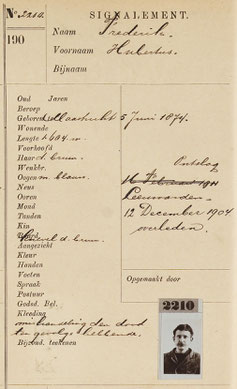 No. 2210. SIGNALEMENT.
190 Naam Frederik.
Voornaam Hubertus.
Bijnaam
Oud Jaren
Beroep
Geboren Maastricht 5 Juni 1874.
Wonende
Lengte 1.604 m.
Voorhoofd
Haar d. bruin. Ontslag
Wenkbr. 16 Februari 1911
Oogen m. blauw.
Neus Leeuwarden.
Ooren
Mond 12 December 1904
Tanden overleden.
Kin
Baard knevel d. bruin.
Aangezicht
Kleur
Handen
Voeten
Spraak Opgemaakt door
Postuur
Godsd. Bel.
Kleeding
mishandeling den dood
ten gevolge hebbende.
Bijzond. teekenen
2210